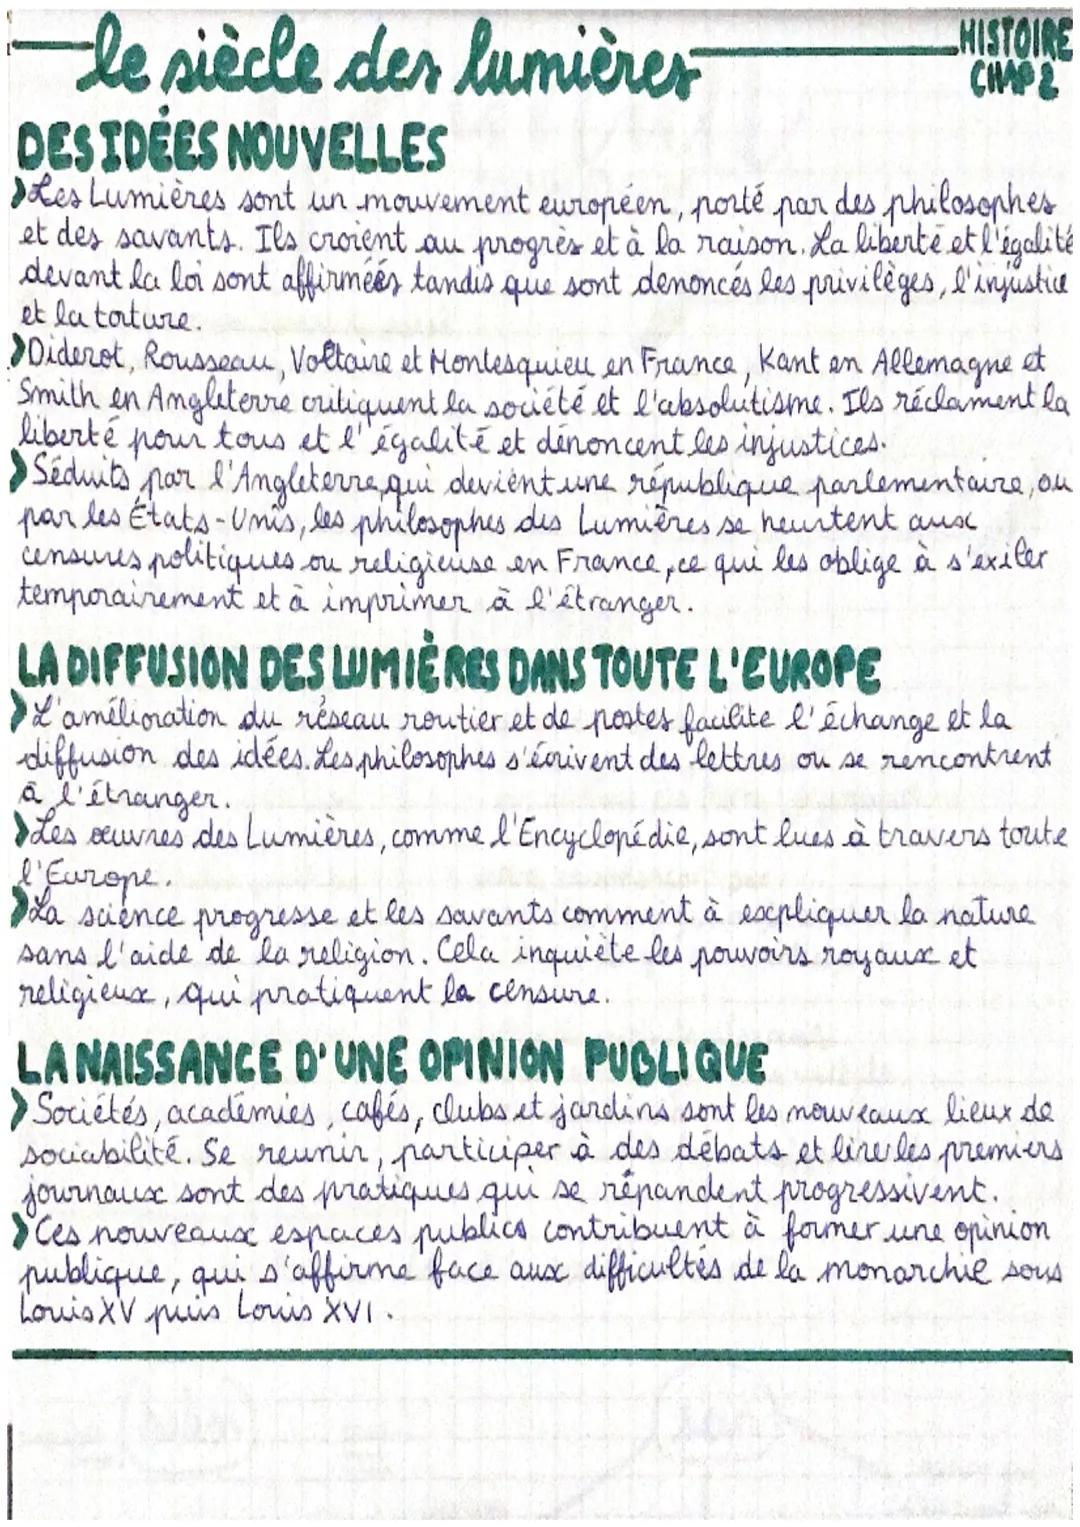 le siècle des lumières
HISTOIRE
CHAP 2
DES IDÉES NOUVELLES
Les Lumières sont un mouvement européen, porté par des philosophes
et des savants. Ils croient au progrès et à la raison. La liberté et l'égalité
devant la loi sont affirmées tandis que sont dénoncés les privilèges, l'injustice
et la torture.
Diderot, Rousseau, Voltaire et Montesquieu en France, Kant en Allemagne et
Smith en Angleterre critiquent la société et l'absolutisme. Ils réclament la
liberté pour tous et l'égalité et dénoncent les injustices.
Séduits par l'Angleterre, qui devient une république parlementaire, ou
par les États-Unis, les philosophes des Lumières se heurtent aux
censures politiques ou religieuse en France, ce qui les oblige à s'exiler
temporairement et à imprimer à l'étranger.
LA DIFFUSION DES LUMIÈRES DANS TOUTE L'EUROPE
L'amélioration du réseau routier et de postes facilite l'échange et la
diffusion des idées. Les philosophes s'écrivent des lettres ou se rencontrent
à l'étranger.
Les œuvres des Lumières, comme l'Encyclopédie, sont lues à travers toute
l'Europe.
La science progresse et les savants comment à expliquer la nature
sans l'aide de la religion. Cela inquiète les pouvoirs royaux et
religieux, qui pratiquent la censure.
LA NAISSANCE D'UNE OPINION PUBLIQUE
Sociétés, académies, cafés, clubs et jardins sont les nouveaux lieux de
sociabilité. Se reunir, participer à des débats et lire les premiers
journaux sont des pratiques qui se répandent progressivent.
Ces nouveaux espaces publics contribuent à former une opinion
publique, qui s'affirme face aux difficultés de la monarchie sous
Louis XV puis Louis XVI.